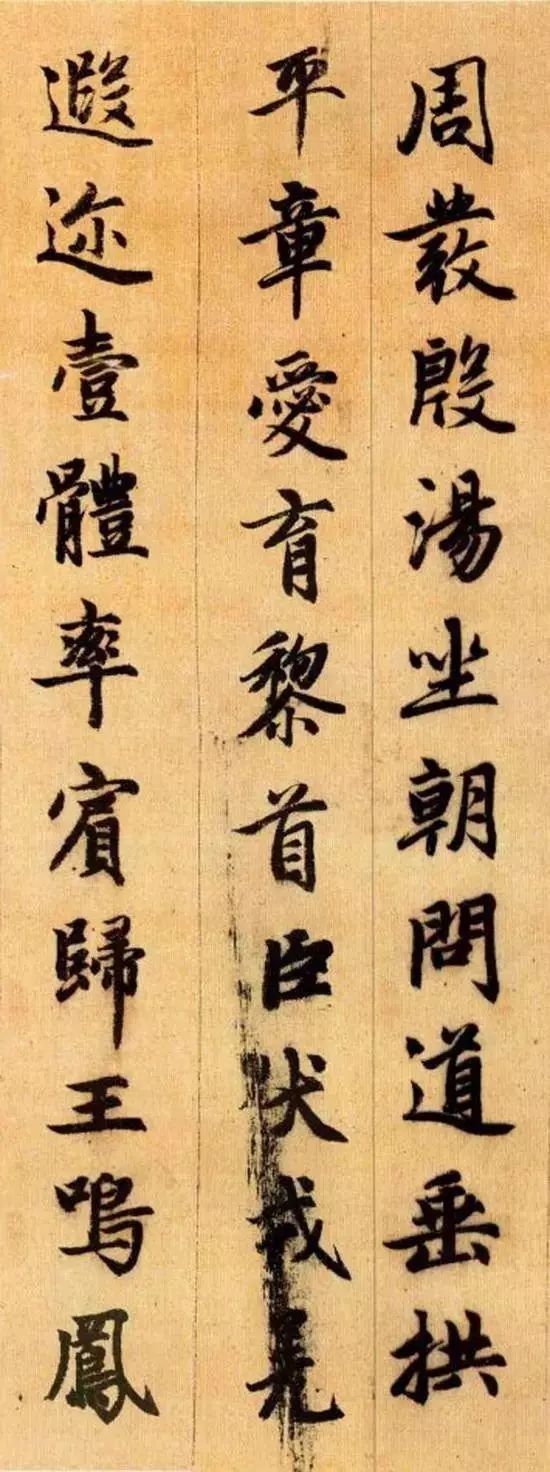 周發殷湯坐朝問道垂拱
平章愛育黎首臣伏戎羌
遐迩壹體率賓歸王鳴鳳